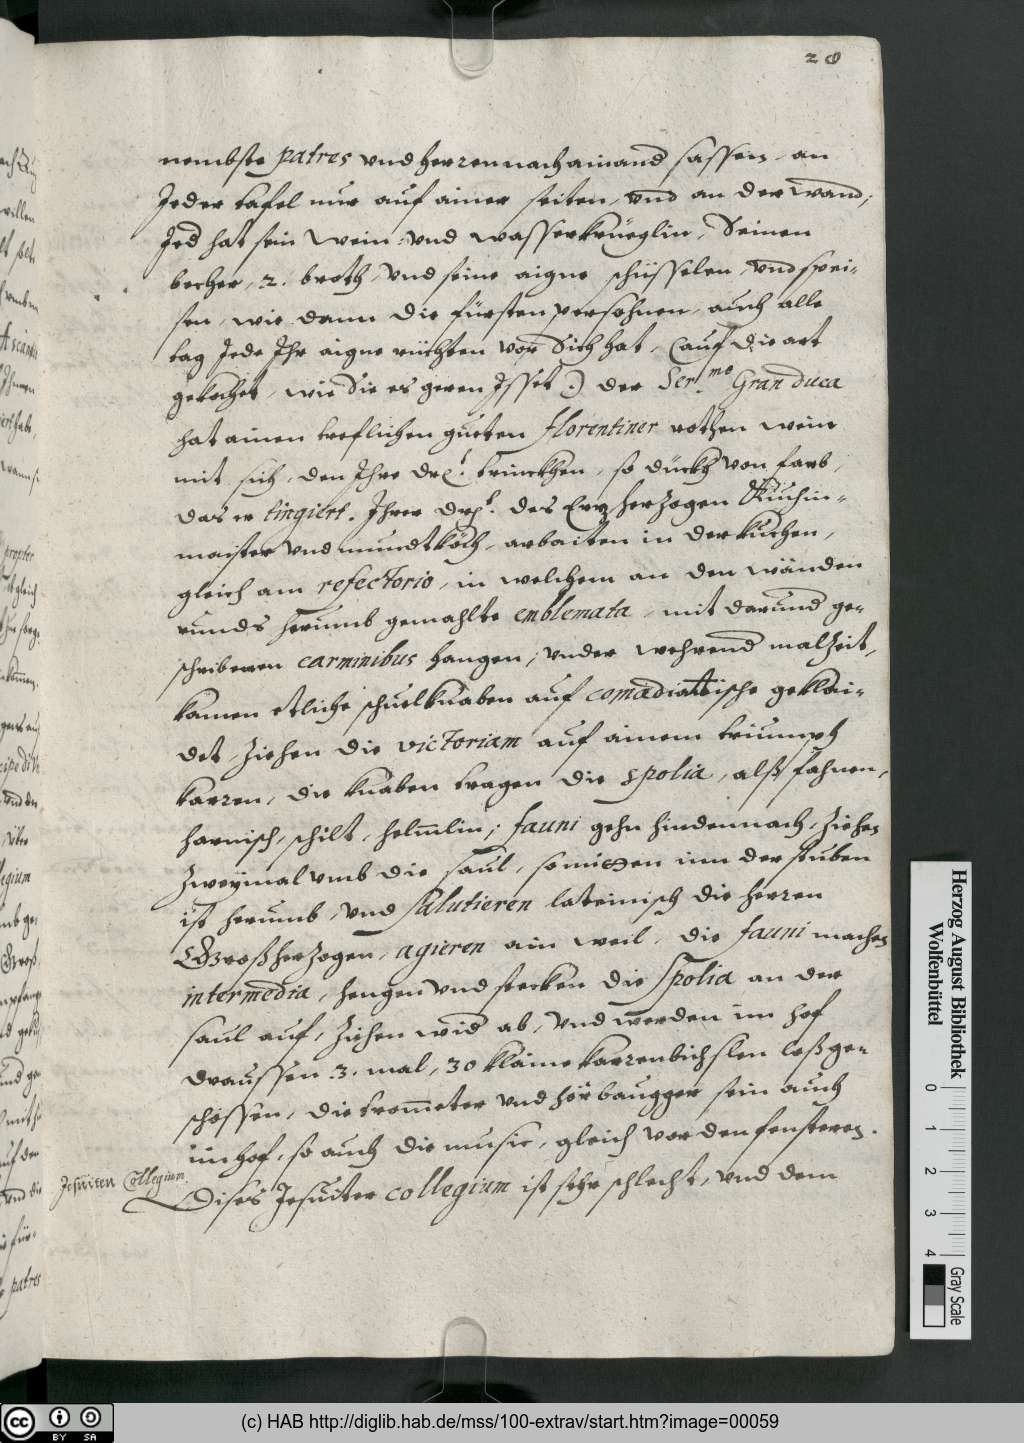 28
nembste patres vnd herren nach ainand sassen, an
Jeder tafel nur auf ainer seiten, vnd an der wand,
Jed hat sein wein- vnd wasserkrüeglin, Seinen
becher, 2. broth, vnd seine aigne schüsselen, vnd spei-
sen, wie dann die fürsten persohnen, auch alle
tag Jede Ihr aigne richten vor Sich hat, (auf die art
gekochet, wie Sie es geren Isset) der Ser.me Gran duca
hat ainen treflichen gueten florentiner rothen wein
mit sich, den Ihre Drl. trinckhen, so dückh von farb,
das er tingiert. Ihrer Drl. des Erzherzogen Kuchin-
maister vnd mundtköch, arbaiten in der kuchen,
gleich am refectorio, in welchem an den wänden
runds herumb gemahlte emblemata, mit darund ge-
schribenen carminibus hangen; vnder wehrend malzeit,
kamen etliche schuelknaben auf comædiattische geklai-
det, ziehen die victoriam auf ainem triumph
karren, die knaben tragen die spolia, alß fahnen,
harnisch, schilt, helmlin; fauni gehn hindennach, ziehen
zweymal vmb die saul, so mitten inn der stuben
ist herumb, vnd salutieren lateinisch die herren
Großherzogen, agieren ain weil, die fauni machen
intermedia, hengen vnd stecken die Spolia an der
saul auf, ziehen wid ab, vnd werden im hof
draussen 3. mal, 30 klaine karrenbichslen loßge-
schossen, die trommeter vnd hörbaugger sein auch
im hof, so auch die music, gleich vor den fensteren.
Jesuiten Collegium.
Dises Jesuiter collegium ist sehr schlecht, vnd dem
Herzog August Bibliothek
Wolfenbüttel
0 1 2 3 4
Gray Scale
cc BY SA
(c) HAB http://diglib.hab.de/mss/100-extrav/start.htm?image=00059